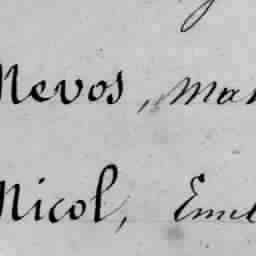 Nevos, Mar
Nicol, Emil